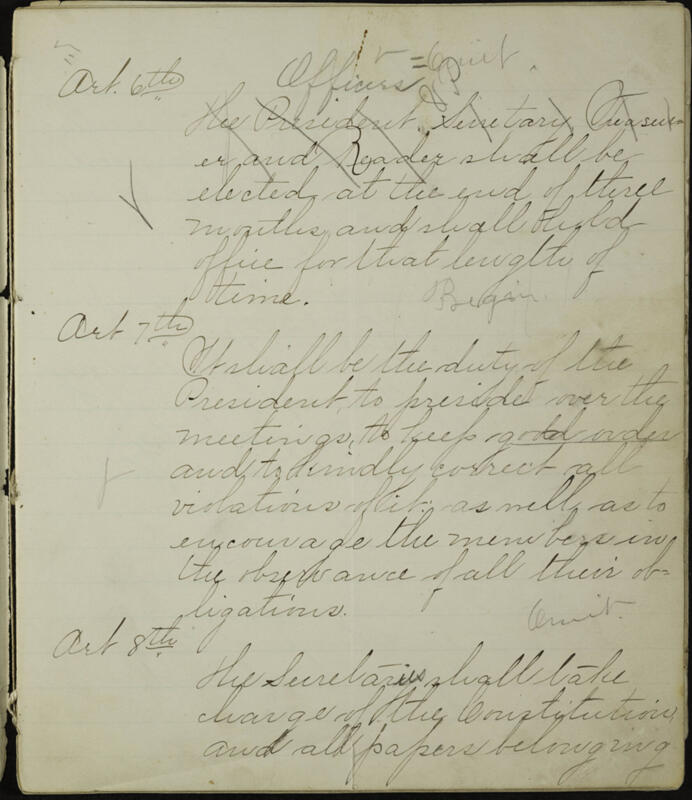 = Omit.
Art. 6th Officers
V P
The President, Secretary, Treasur
er and Reader shall be
elected at the end of three
months and shall hold
office for that length of
time.
Begin
Art 7th
It shall be the duty of the
President, to preside over the
meetings, to keep good order
and to kindly correct all
violations of it. as well as to
encourage the members in
the observance of all their ob=
ligations.
Omit.
Art 8th
The Secretaries shall take
charge of the Constitution
and all papers belonging